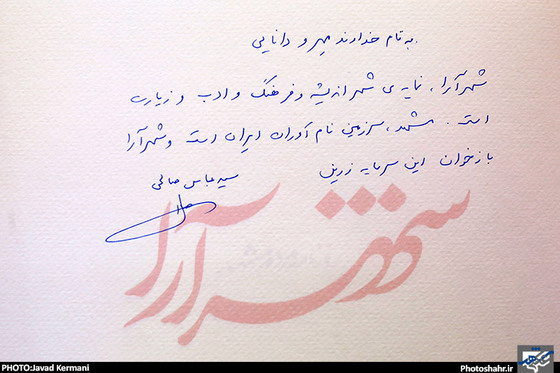 به نام خداوند مهر و دانایی.
شهرآرا، نمایه‌ی شهر اندیشه و فرهنگ و ادب و زیارت
است. مشهد، سرزمین نام آوران ایران است و شهرآرا
بازخوان این سرمایه زرین
سید عباس صالحی
شهرآرا
PHOTO:Javad Kermani
Photoshahr.ir